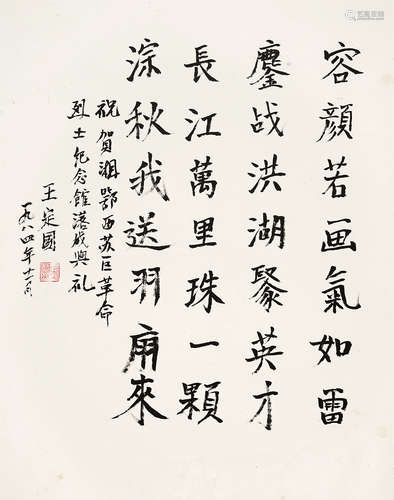 容顏若画氣如雷
鏖战洪湖聚英才
長江萬里珠一顆
深秋我送羽扇來
祝賀湘鄂西苏区革命
烈士纪念館落成典礼
王定國
一九八四年十二月